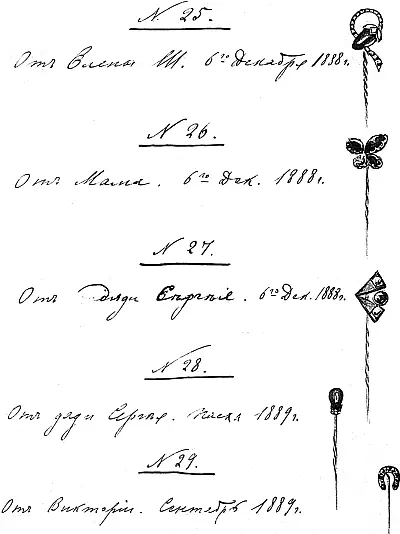 N. 25.
Отъ Елены Ш. 6го Декабря 1888 г.
N 26.
Отъ Мама. 6го Дек. 1888 г.
N 27.
Отъ дяди Сергѣя. 6го Дек. 1888 г.
N 28.
Отъ дяди Сергѣя. Пасха 1889 г.
N 29.
Отъ Викторіи. Сентябрь 1889 г.